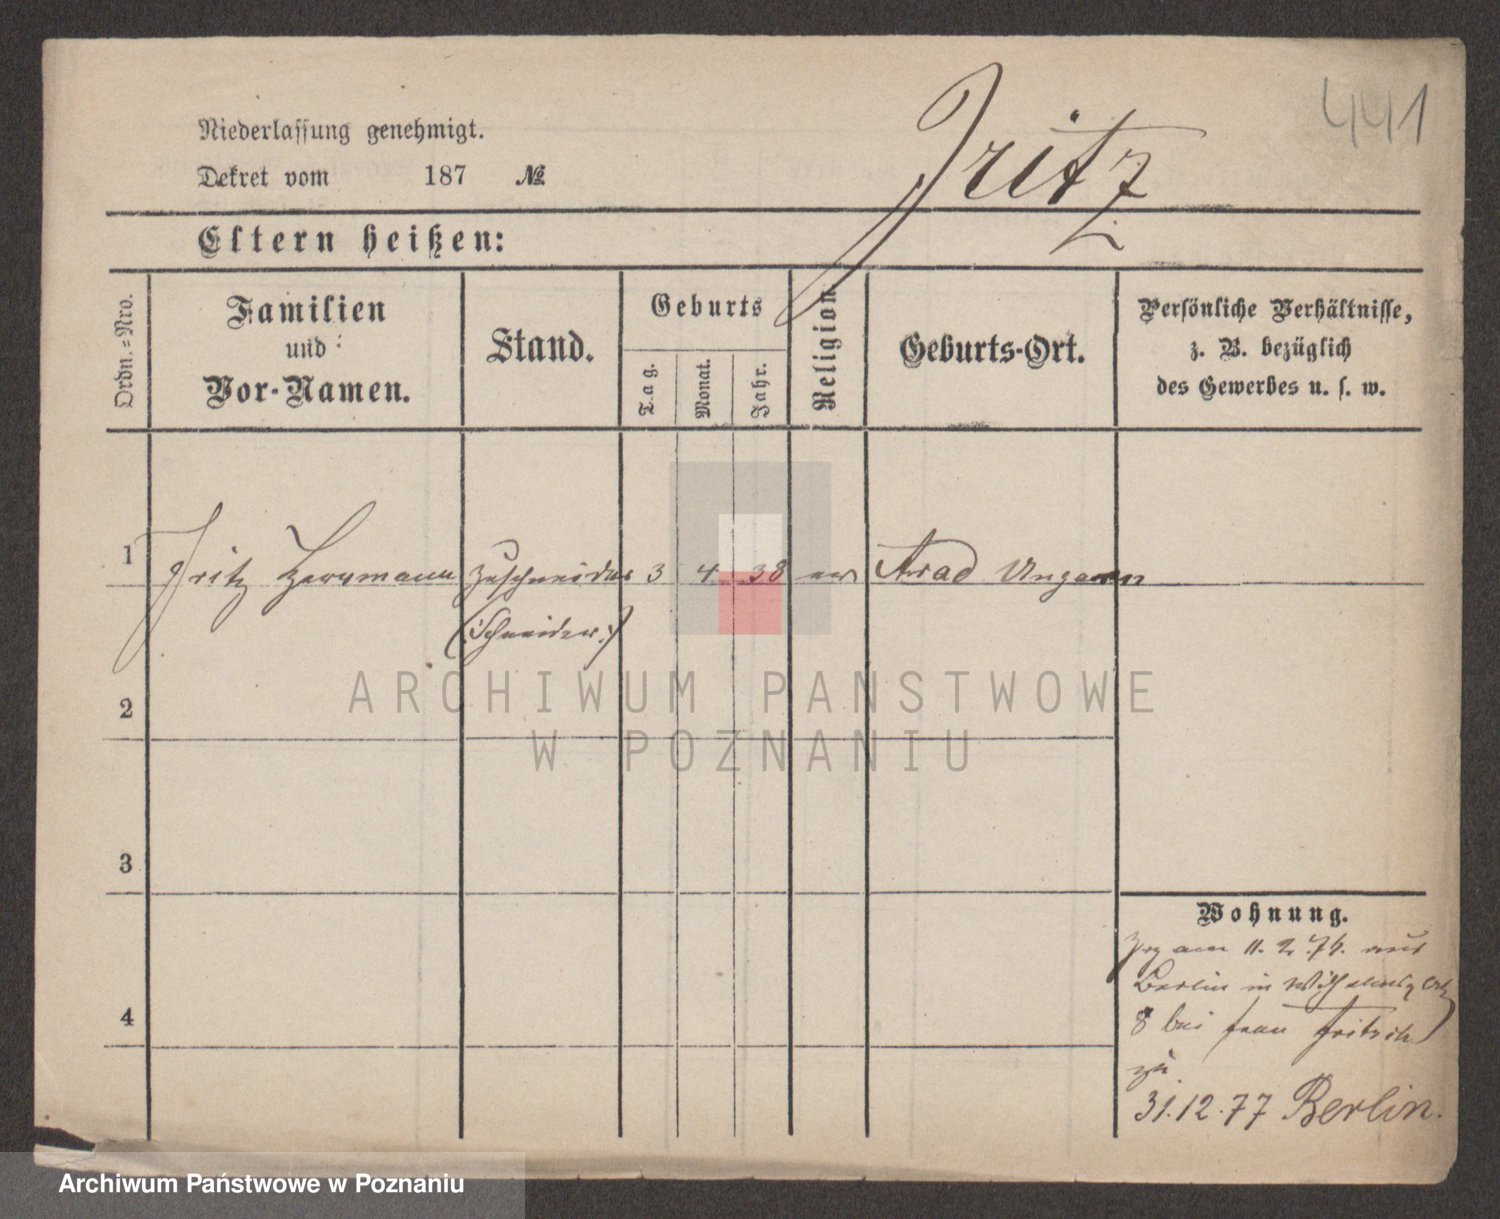 441
Fritz
Niederlassung genehmigt.
Dekret vom 187 №
Eltern heißen:
Ordn.=Nro.
Familien
und
Vor-Namen.
Stand.
Geburts
Tag.
Monat.
Jahr.
Religion.
Geburts-Ort.
Persönliche Verhältnisse,
z. B. bezüglich
des Gewerbes u. s. w.
1 Fritz Herrmann Zuschneider 3 4 38 Arad Ungarn
(Schneider.)
2
3
4
Wohnung.
am 11. 2. aus
Berlin in
8 bei Frau Fritsch
zu
31.12.77 Berlin.
ARCHIWUM PAŃSTWOWE
W POZNANIU
Archiwum Państwowe w Poznaniu